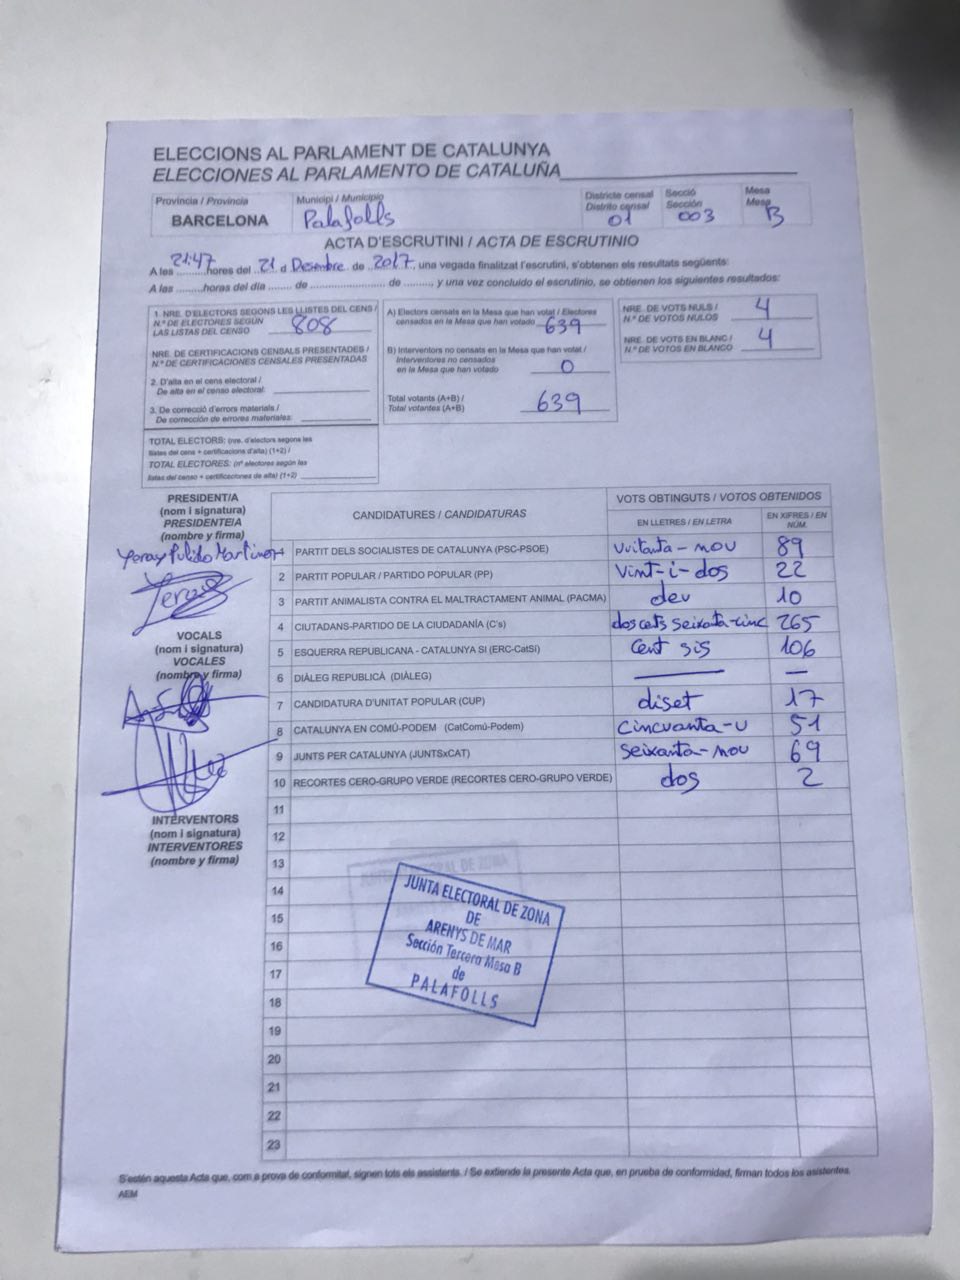 ELECCIONS AL PARLAMENT DE CATALUNYA
ELECCIONES AL PARLAMENTO DE CATALUÑA
Província / Provincia
BARCELONA
Municipi / Municipio
Palafolls
Districte censal
Distrito censal
01
Secció
Sección
003
Mesa
Mesa
B
ACTA D'ESCRUTINI / ACTA DE ESCRUTINIO
A les 21:47 hores del 21 d Desembre de 2017, una vegada finalitzat l'escrutini, s'obtenen els resultats següents:
A las .........horas del día ....... de ......................... de ........., y una vez concluido el escrutinio, se obtienen los siguientes resultados:
1. NRE. D'ELECTORS SEGONS LES LLISTES DEL CENS /
N.º DE ELECTORES SEGÚN
LAS LISTAS DEL CENSO 808
NRE. DE CERTIFICACIONS CENSALS PRESENTADES /
N.º DE CERTIFICACIONES CENSALES PRESENTADAS
2. D'alta en el cens electoral /
De alta en el censo electoral:
3. De correcció d'errors materials /
De corrección de errores materiales:
TOTAL ELECTORS: (nre. d'electors segons les
llistes del cens + certificacions d'alta) (1+2) /
TOTAL ELECTORES: (nº electores según las
listas del censo + certificaciones de alta) (1+2)
A) Electors censats en la Mesa que han votat / Electores
censados en la Mesa que han votado 639
B) Interventors no censats en la Mesa que han votat /
Interventores no censados
en la Mesa que han votado 0
Total votants (A+B) /
Total votantes (A+B) 639
NRE. DE VOTS NULS /
N.º DE VOTOS NULOS 4
NRE. DE VOTS EN BLANC /
N.º DE VOTOS EN BLANCO 4
PRESIDENT/A
(nom i signatura)
PRESIDENTE/A
(nombre y firma)
Yeray Pulido Martinez
Yeray
VOCALS
(nom i signatura)
VOCALES
(nombre y firma)
INTERVENTORS
(nom i signatura)
INTERVENTORES
(nombre y firma)
CANDIDATURES / CANDIDATURAS
VOTS OBTINGUTS / VOTOS OBTENIDOS
EN LLETRES / EN LETRA
EN XIFRES / EN NÚM.
1 PARTIT DELS SOCIALISTES DE CATALUNYA (PSC-PSOE) Vuitanta-nou 89
2 PARTIT POPULAR / PARTIDO POPULAR (PP) Vint-i-dos 22
3 PARTIT ANIMALISTA CONTRA EL MALTRACTAMENT ANIMAL (PACMA) deu 10
4 CIUTADANS-PARTIDO DE LA CIUDADANÍA (C's) dos cets seixanta-cinc 265
5 ESQUERRA REPUBLICANA - CATALUNYA SÍ (ERC-CatSí) Cent sis 106
6 DIÀLEG REPUBLICÀ (DIÀLEG) — —
7 CANDIDATURA D'UNITAT POPULAR (CUP) diset 17
8 CATALUNYA EN COMÚ-PODEM (CatComú-Podem) Cincuanta-u 51
9 JUNTS PER CATALUNYA (JUNTSxCAT) Seixanta-nou 69
10 RECORTES CERO-GRUPO VERDE (RECORTES CERO-GRUPO VERDE) dos 2
11
12
13
14
15
16
17
18
19
20
21
22
23
JUNTA ELECTORAL DE ZONA
DE
ARENYS DE MAR
Sección Tercera Mesa B
de
PALAFOLLS
S'estén aquesta Acta que, com a prova de conformitat, signen tots els assistents. / Se extiende la presente Acta que, en prueba de conformidad, firman todos los asistentes.
AEM